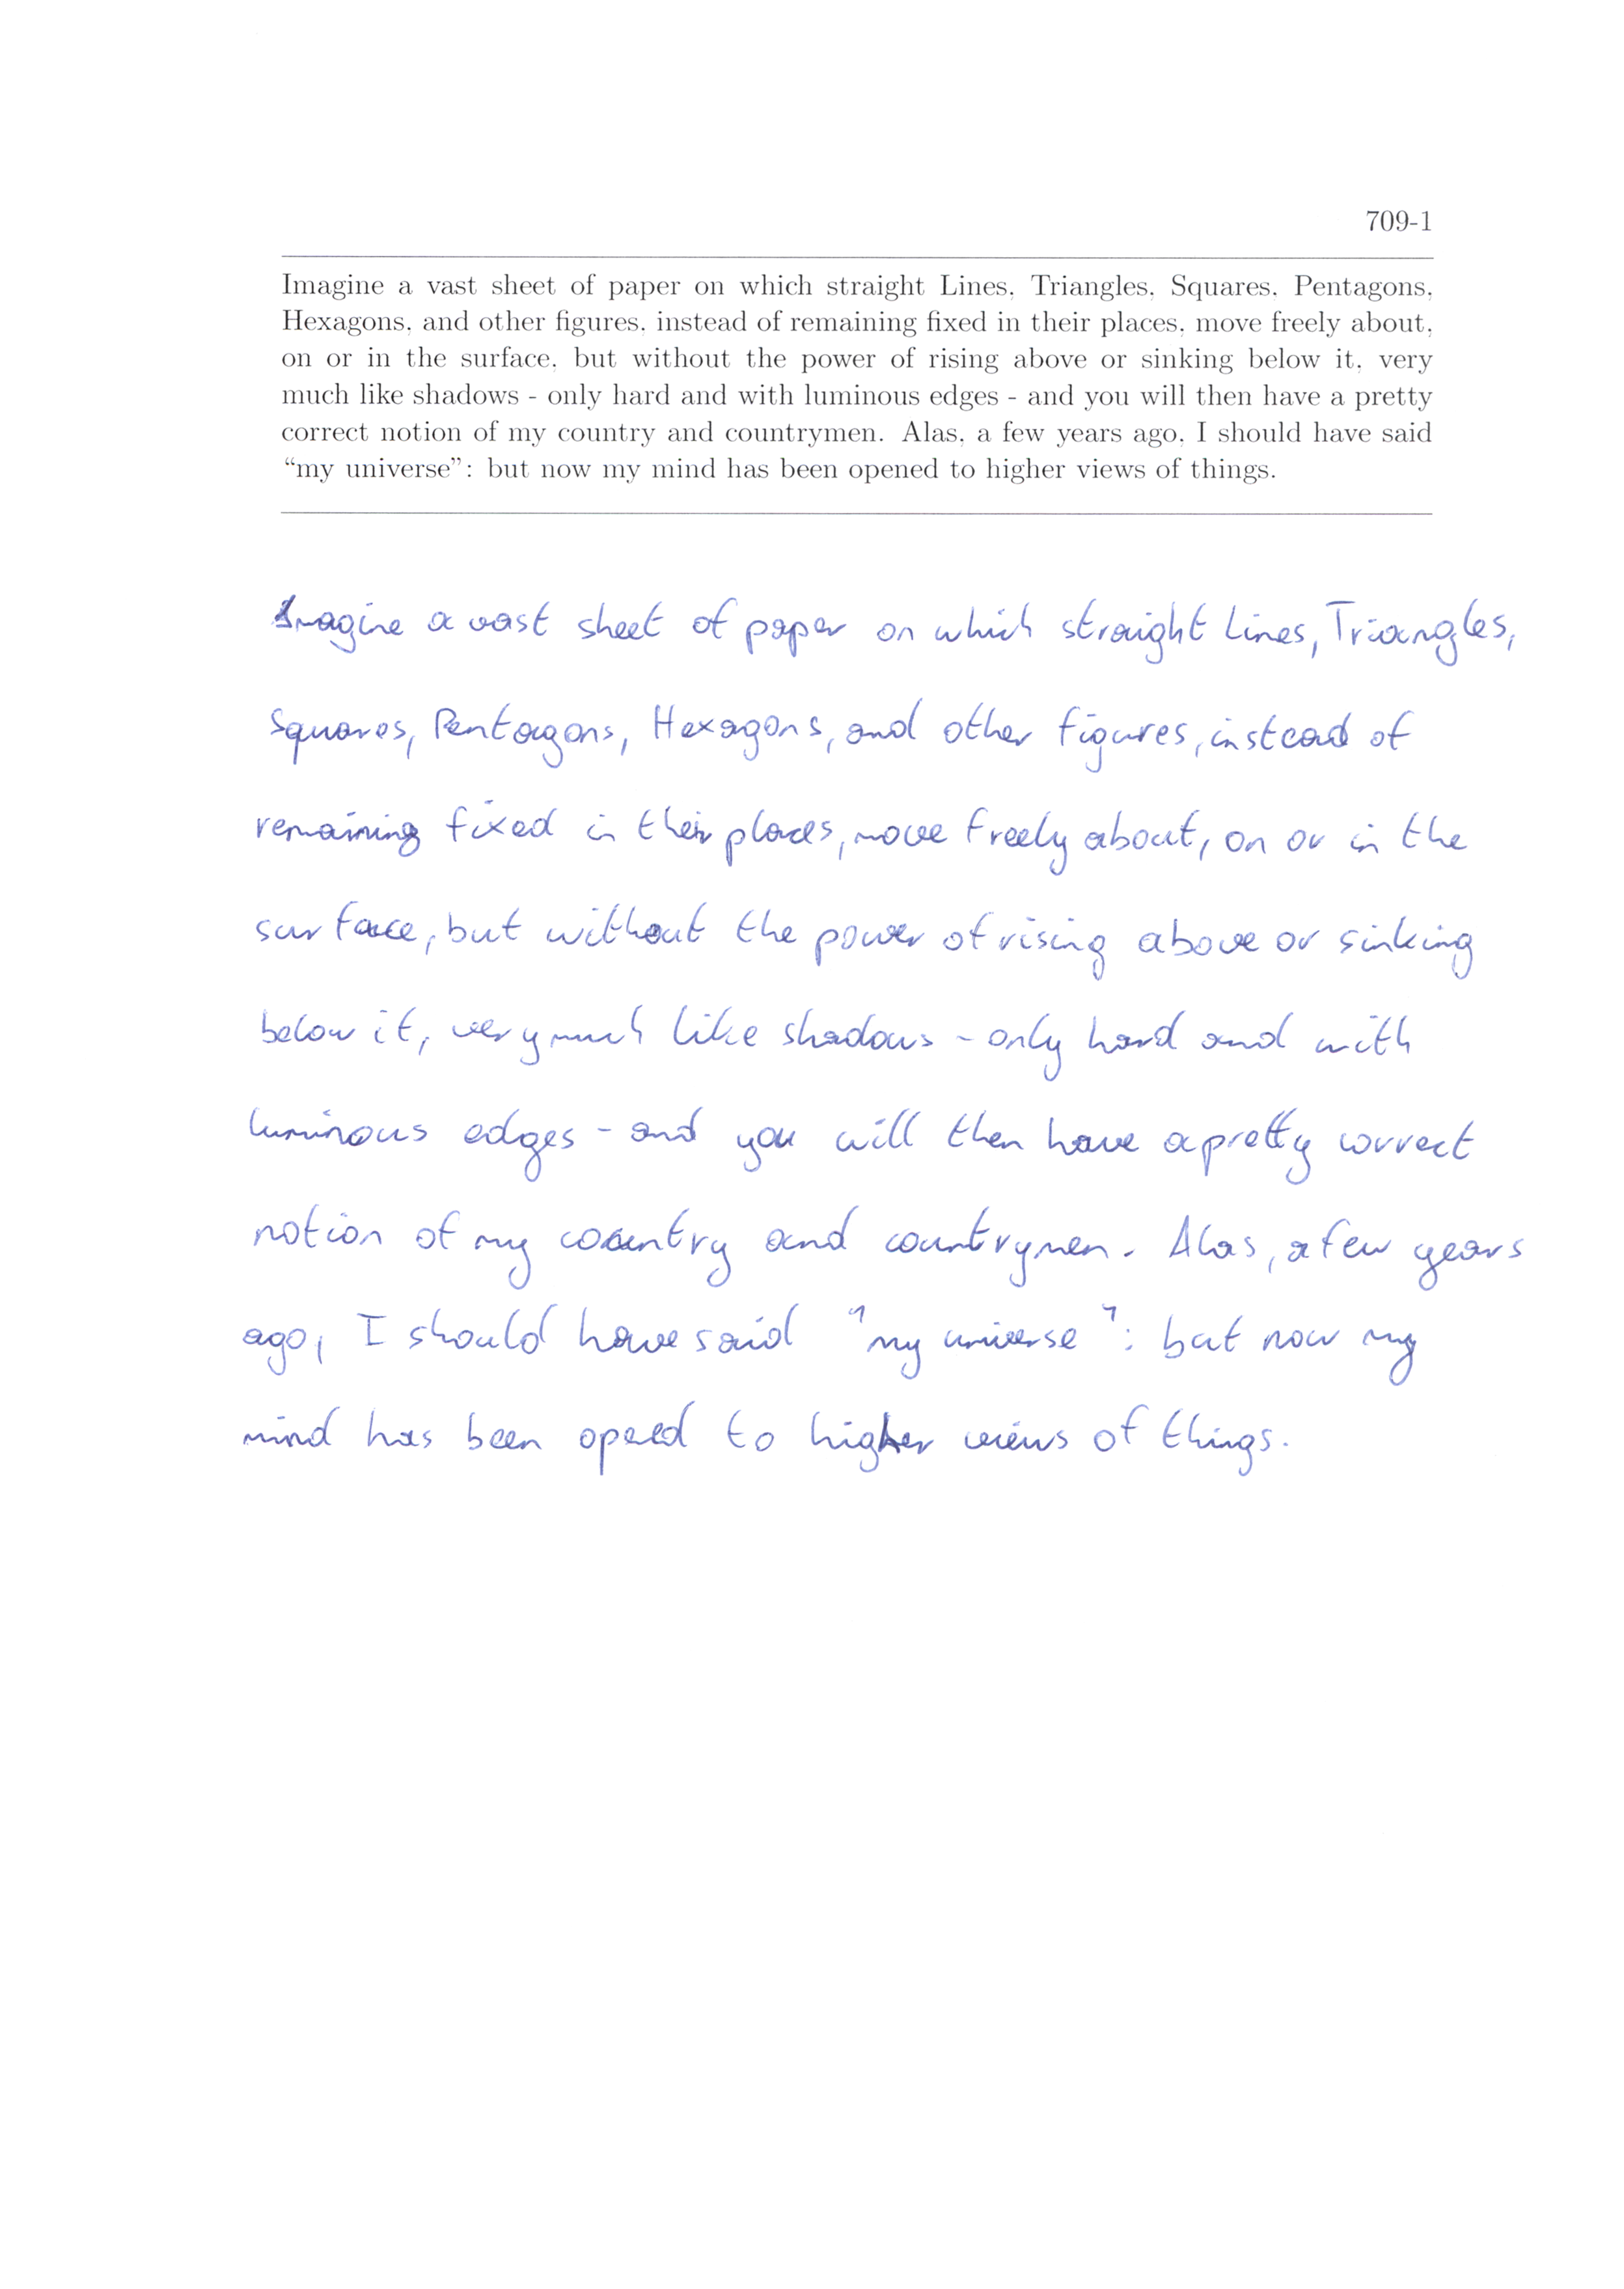 709-1
Imagine a vast sheet of paper on which straight Lines, Triangles, Squares, Pentagons,
Hexagons, and other figures, instead of remaining fixed in their places, move freely about,
on or in the surface, but without the power of rising above or sinking below it, very
much like shadows - only hard and with luminous edges - and you will then have a pretty
correct notion of my country and countrymen. Alas, a few years ago, I should have said
“my universe”: but now my mind has been opened to higher views of things.
Imagine a vast sheet of paper on which straight Lines, Triangles,
Squares, Pentagons, Hexagons, and other figures, instead of
remaining fixed in their places, move freely about, on or in the
surface, but without the power of rising above or sinking
below it, very much like shadows - only hard and with
luminous edges - and you will then have a pretty correct
notion of my country and countrymen. Alas, a few years
ago, I should have said "my universe": but now my
mind has been opened to higher views of things.